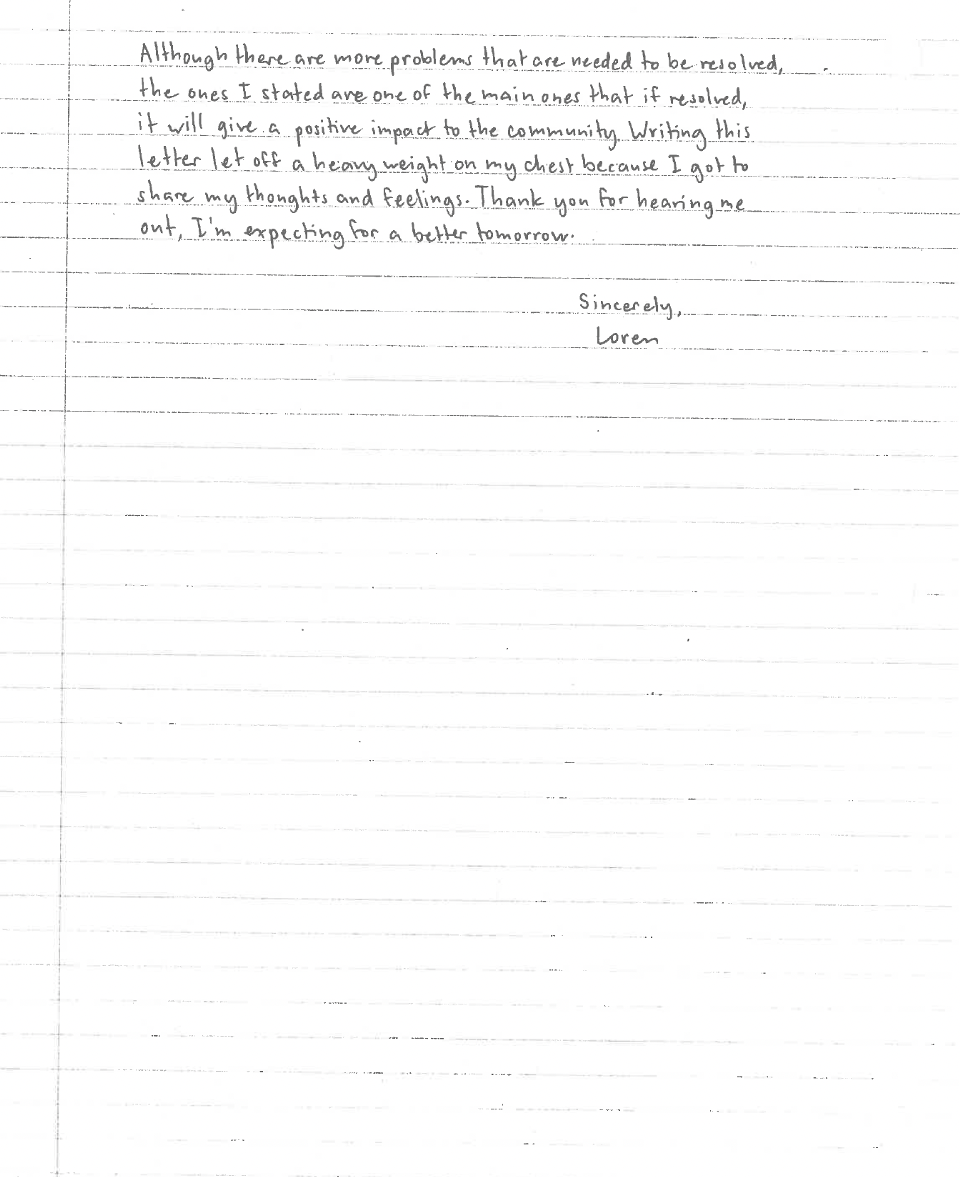 Although there are more problems that are needed to be resolved,
the ones I stated are one of the main ones that if resolved,
it will give a positive impact to the community. Writing this
letter let off a heavy weight on my chest because I got to
share my thoughts and feelings. Thank you for hearing me
out, I'm expecting for a better tomorrow.
Sincerely,
Loren